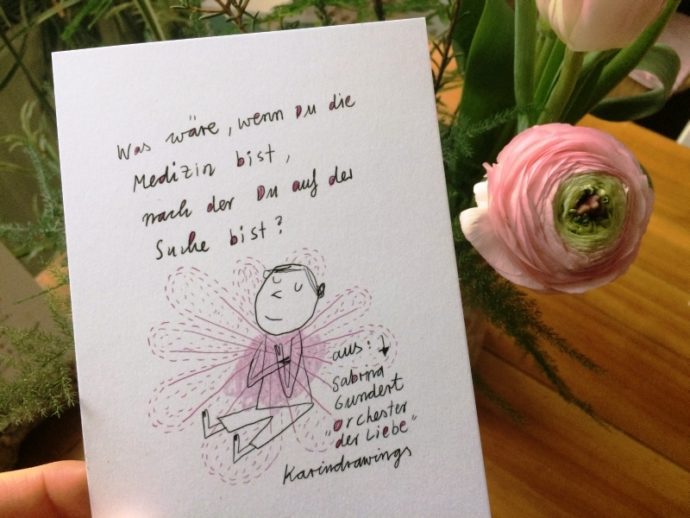 Was wäre, wenn Du die
Medizin bist,
nach der Du auf der
Suche bist?
aus: ↓
Sabrina
Gundert
"Orchester
der Liebe"
Karindrawings